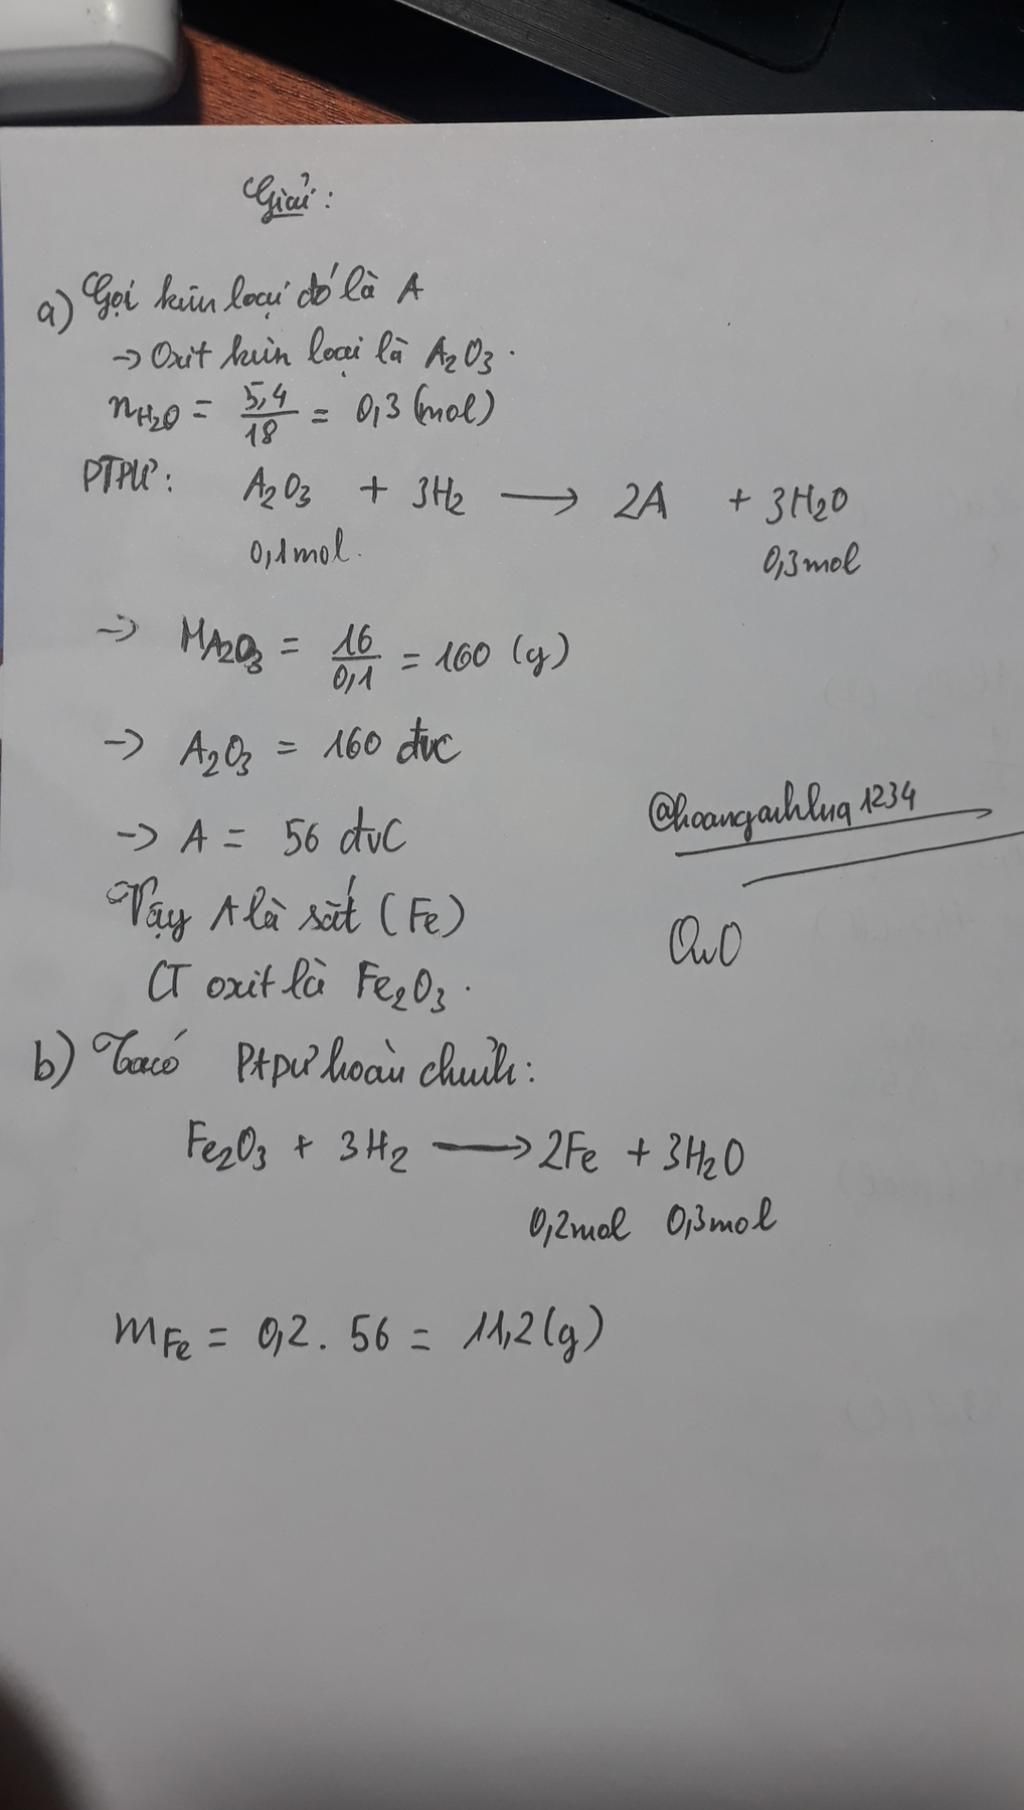 Giải:
a) Gọi kim loại đó là A
→ Oxit kim loại là A₂O₃.
nH₂O = 5,4/18 = 0,3 (mol)
PTPƯ: A₂O₃ + 3H₂ ⟶ 2A + 3H₂O
0,1mol. 0,3mol
→ MA₂O₃ = 16/0,1 = 160 (g)
→ A₂O₃ = 160 đvc
→ A = 56 đvC
@hoanganhlua1234
Vậy A là sắt (Fe)
OwO
CT oxit là Fe₂O₃.
b) Ta có PtpƯ hoàn chỉnh:
Fe₂O₃ + 3H₂ ⟶ 2Fe + 3H₂O
0,2mol 0,3mol
mFe = 0,2. 56 = 11,2(g)